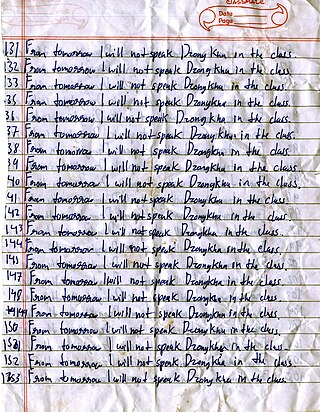 Classmate
Date
Page
131 From tomorrow I will not speak Dzongkha in the class.
132 From tomorrow I will not speak Dzongkha in the class.
133 From tomorrow I will not speak Dzongkha in the class.
135 From tomorrow I will not speak Dzongkha in the class.
136 From tomorrow I will not speak Dzongkha in the class.
137 From tomorrow I will not speak Dzongkha in the class.
138 From tomorrow I will not speak Dzongkha in the class
139 From tomorrow I will not speak Dzongkha in the class.
140 From tomorrow I will not speak Dzongkha in the class.
141 From tomorrow I will not speak Dzongkha in the class.
142 From tomorrow I will not speak Dzongkha in the class.
143 From tomorrow I will not speak Dzongkha in the class.
144 From tomorrow I will not speak Dzongkha in the class.
145 From tomorrow I will not speak Dzongkha in the class.
147 From tomorrow I will not speak Dzongkha in the class.
148 From tomorrow I will not speak Dzongkha in the class.
149 From tomorrow I will not speak Dzongkha in the class.
150 From tomorrow I will not speak Dzongkha in the class.
151 From tomorrow I will not speak Dzongkha in the class.
152 From tomorrow I will not speak Dzongkha in the class.
153 From tomorrow I will not speak Dzongkha in the class.